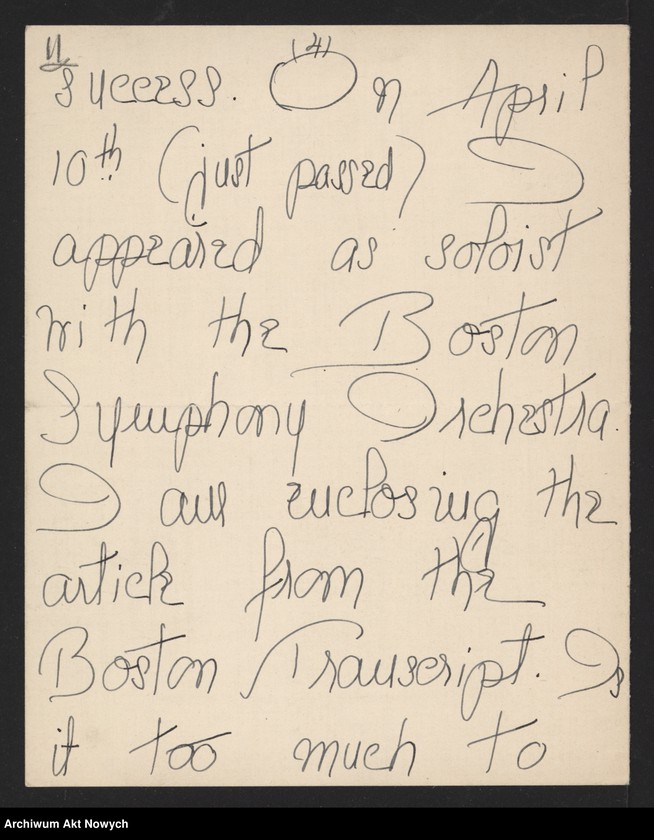 11 (4)
success. On April
10th (just passed) I
appeared as soloist
with the Boston
Symphony Orchestra.
I am enclosing the
article from the
Boston Transcript. Is
it too much to
Archiwum Akt Nowych